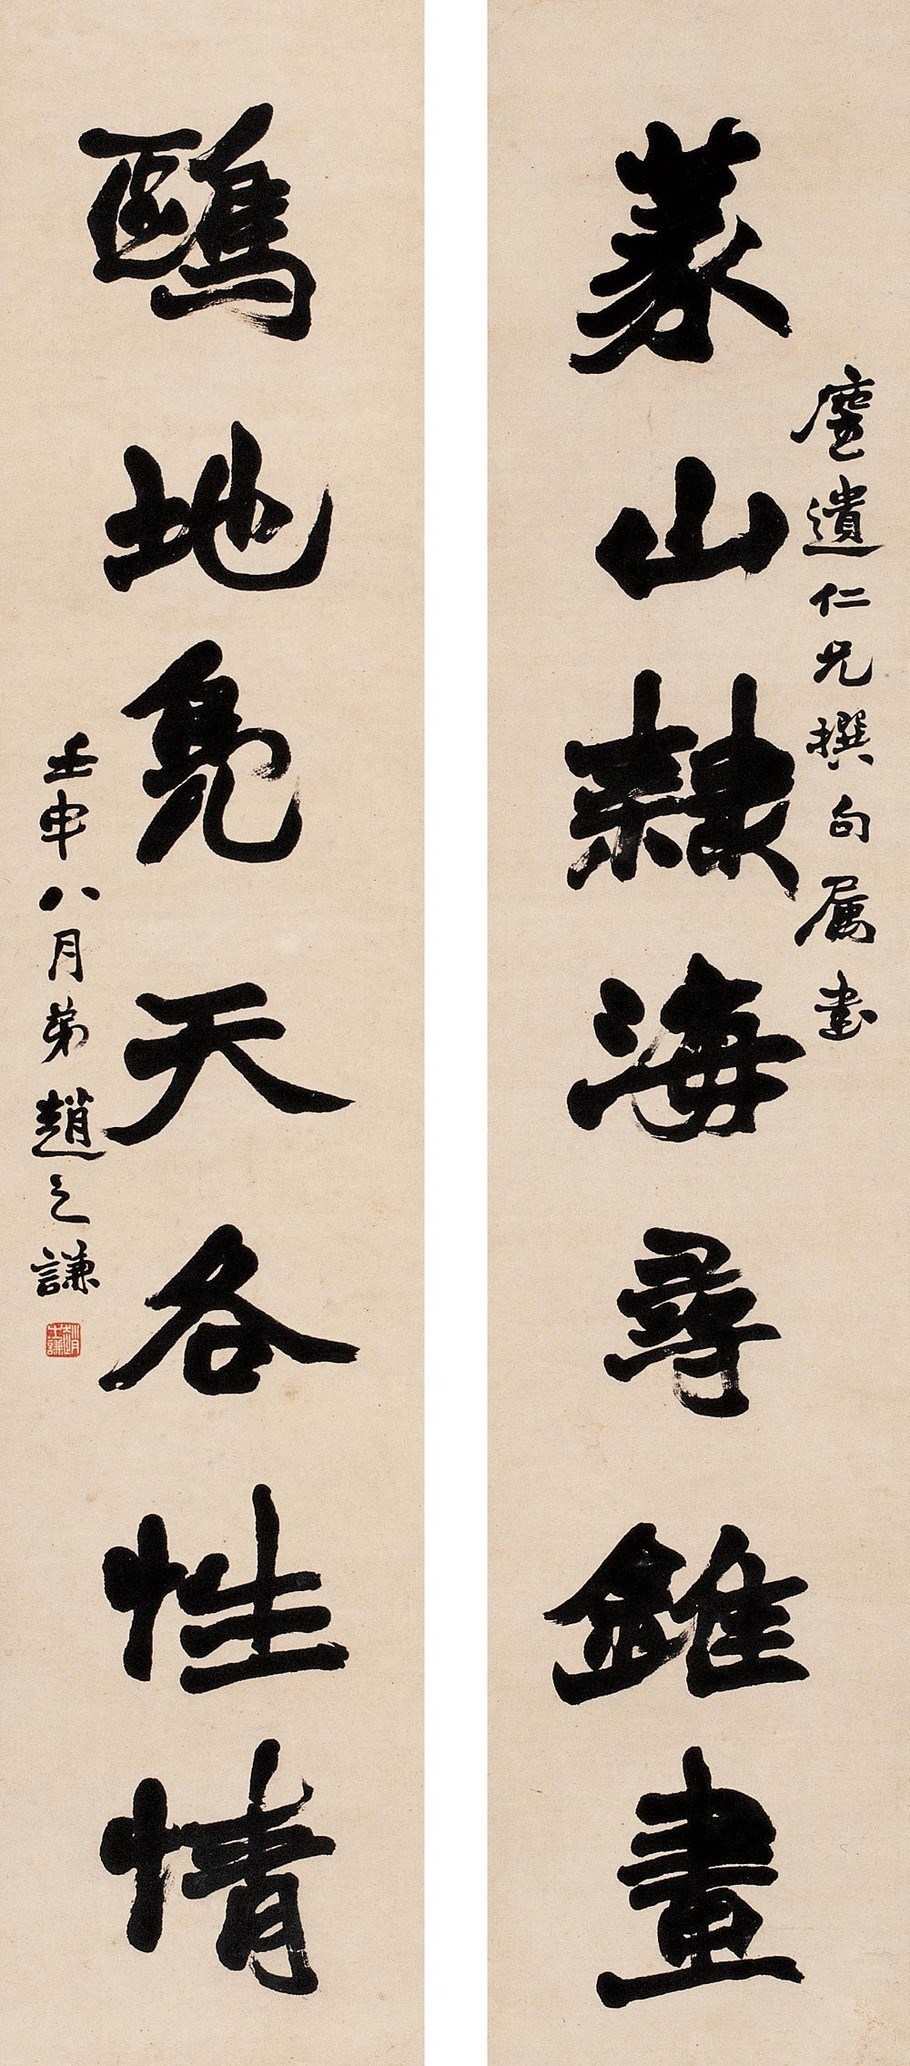 遺仁兄撰句属書
篆山隸海尋錐畫
鷗地鳧天各性情
壬申八月弟趙之謙
趙之謙